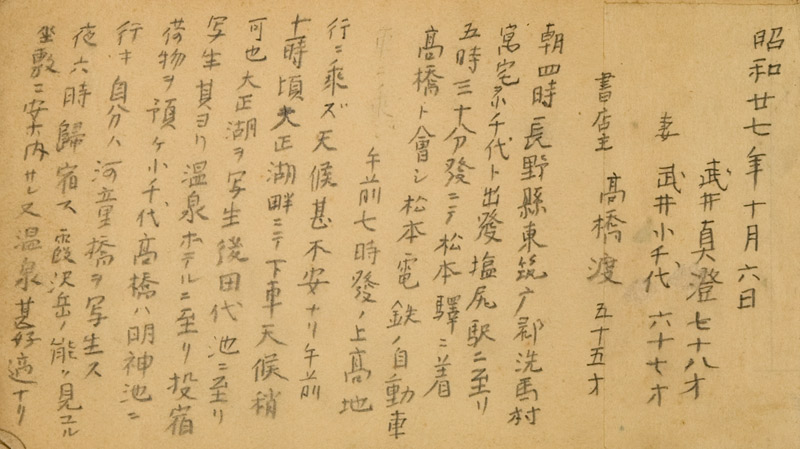 昭和廿七年十月六日
武井真澄 七十八才
妻 武井小千代 六十七才
書店主 高橋渡 五十五才
朝四時長野縣東筑广郡洗馬村
寓宅小千代ト出発塩尻駅ニ至リ
五時三十分発ニテ松本驛ニ着
高橋ト會シ松本電鉄ノ自動車
午前七時発ノ上高地
行ニ乗ズ天候甚不安ナリ午前
十時頃大正湖畔ニテ下車天候稍
可也大正湖ヲ写生後田代池ニ至リ
写生其ヨリ温泉ホテルニ至リ投宿
荷物ヲ預ケ小千代高橋ハ明神池ニ
行キ自分ハ河童橋ヲ写生ス
夜六時歸宿ス霞沢岳ノ能ク見ユル
坐敷ニ安内サレ又温泉甚好適ナリ